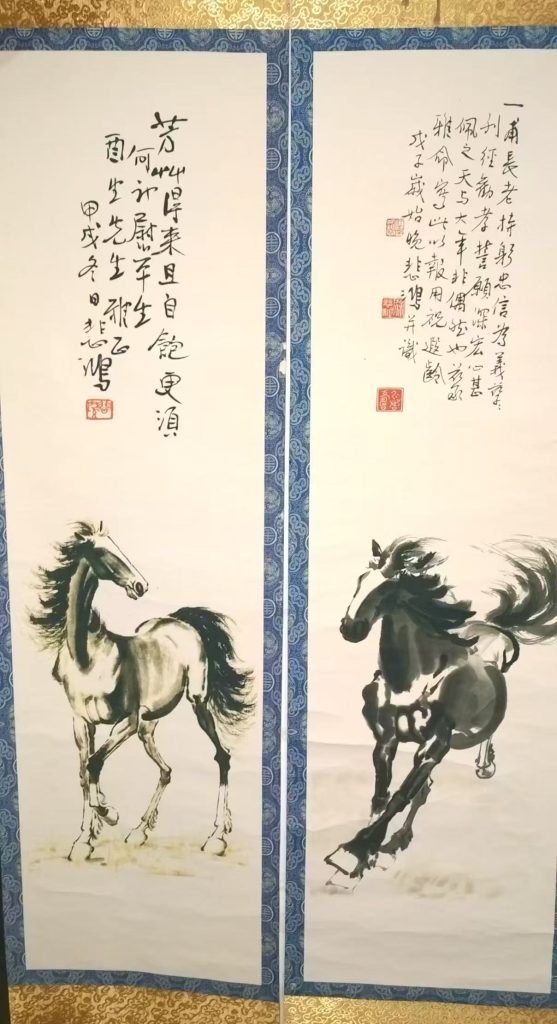 一甫長老持躬忠信為義孳孳
刊經勸孝誓願深宏心甚
佩之天与大年非偶然也茲承
雅命寫此以報用祝遐齡
戊子歲始晚悲鴻并識
芳艸得来且自飽更須
何計慰平生
酉生先生雅正
甲戌冬日悲鴻